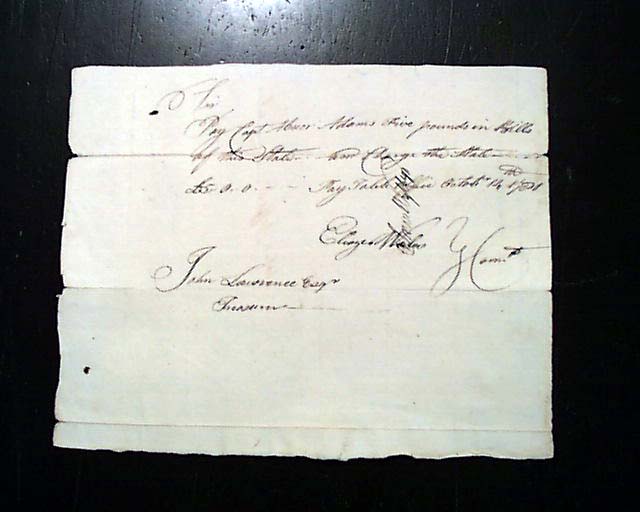 Sir
Pay Capt Abner Adams Five pounds in Bills
of this State and Charge the State
£5. 0. 0. Pay Table Office Octobr 14th 1781
Eleazr Wales } Comtt
John Lawrence Esqr
Treasurer